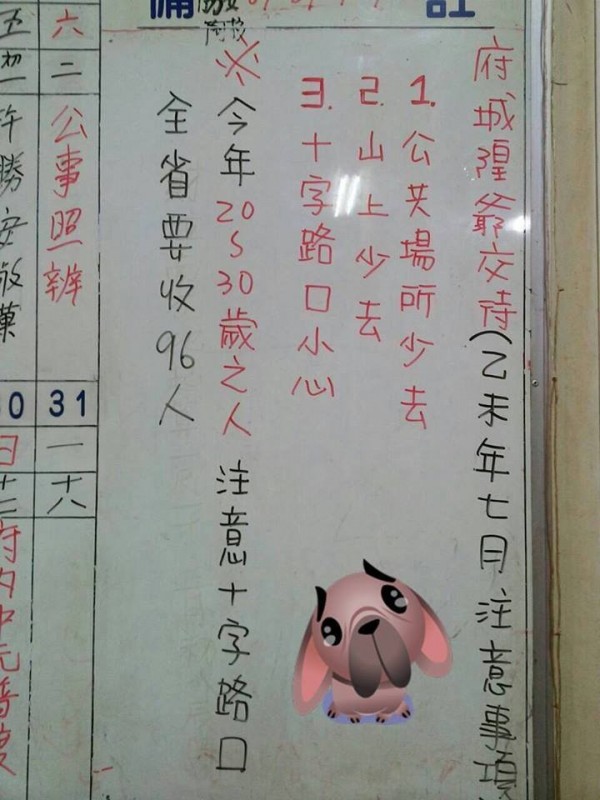 備
註
府城隍爺交待(乙未年七月注意事項
1.公共場所少去
2.山上少去
3.十字路口小心
※今年20~30歲之人 注意十字路口
全省要收96人
六
二
公事照辦
31
一
十八
五
初一
許勝安敬藥
0
日
十七
府內中元普度